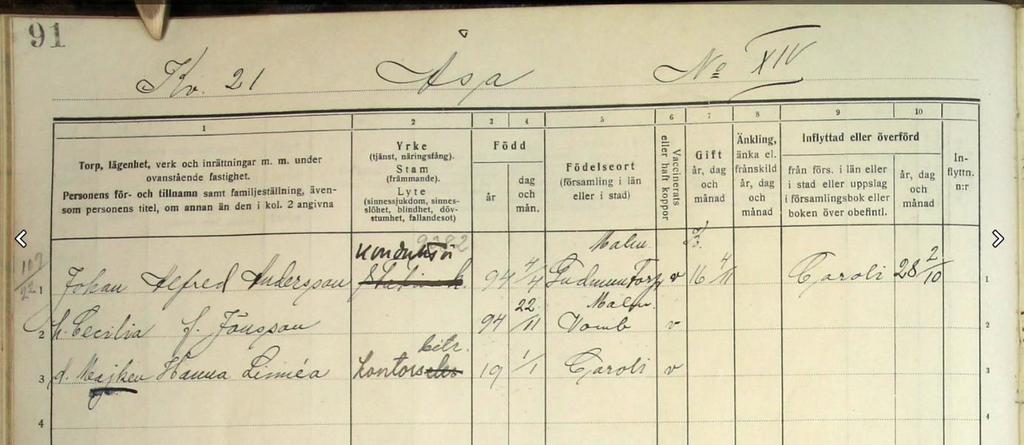 91
Kv. 21 Åsa No XIV
1 2 3 4 5 6 7 8 9 10
Torp, lägenhet, verk och inrättningar m. m. under
ovanstående fastighet.
Personens för- och tillnamn samt familjeställning, även-
som personens titel, om annan än den i kol. 2 angivna
Yrke
(tjänst, näringsfång).
Stam
(främmande).
Lyte
(sinnessjukdom, sinnes-
slöhet, blindhet, döv-
stumhet, fallandesot)
Född
år
dag
och
mån.
Födelseort
(församling i län
eller i stad)
Vaccinerats
eller haft koppor
Gift
år, dag
och
månad
Änkling,
änka el.
frånskild
år, dag
och
månad
Inflyttad eller överförd
från förs. i län eller
i stad eller uppslag
i församlingsbok eller
boken över obefintl.
år, dag
och
månad
In-
flyttn.
n:r
Malm.
1 Johan Alfred Andersson Konduktör 94 4/4 Gudmuntorp v 16 4/11 Caroli 28 2/10 1
Malm.
2 h. Cecilia f. Jönsson 94 22/11 Vomb v 2
bitr.
3 d. Majken Hanna Linnéa kontors 19 1/1 Caroli v 3
4 4